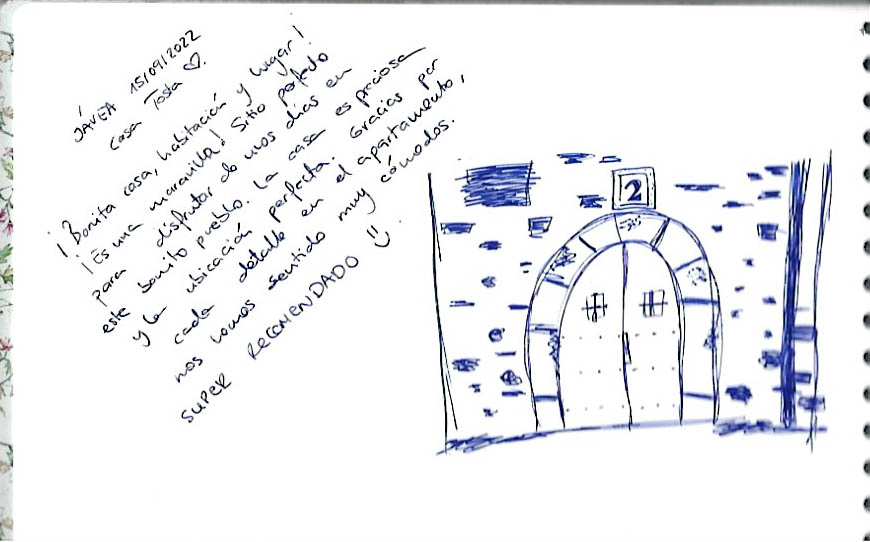 JÁVEA 15/09/2022
Casa Tosta ♡.
¡Bonita casa, habitación y lugar!
¡Es una maravilla! Sitio perfecto
para disfrutar de unos días en
este bonito pueblo. La casa es preciosa
y la ubicación perfecta. Gracias por
cada detalle en el apartamento,
nos hemos sentido muy cómodos.
SUPER RECOMENDADO ☺
2